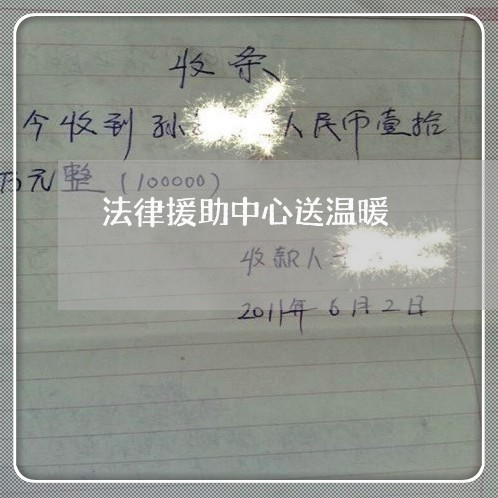 收条
今收到孙 人民币壹拾
万元整(100000)
法律援助中心送温暖
收款人
2011年6月2日